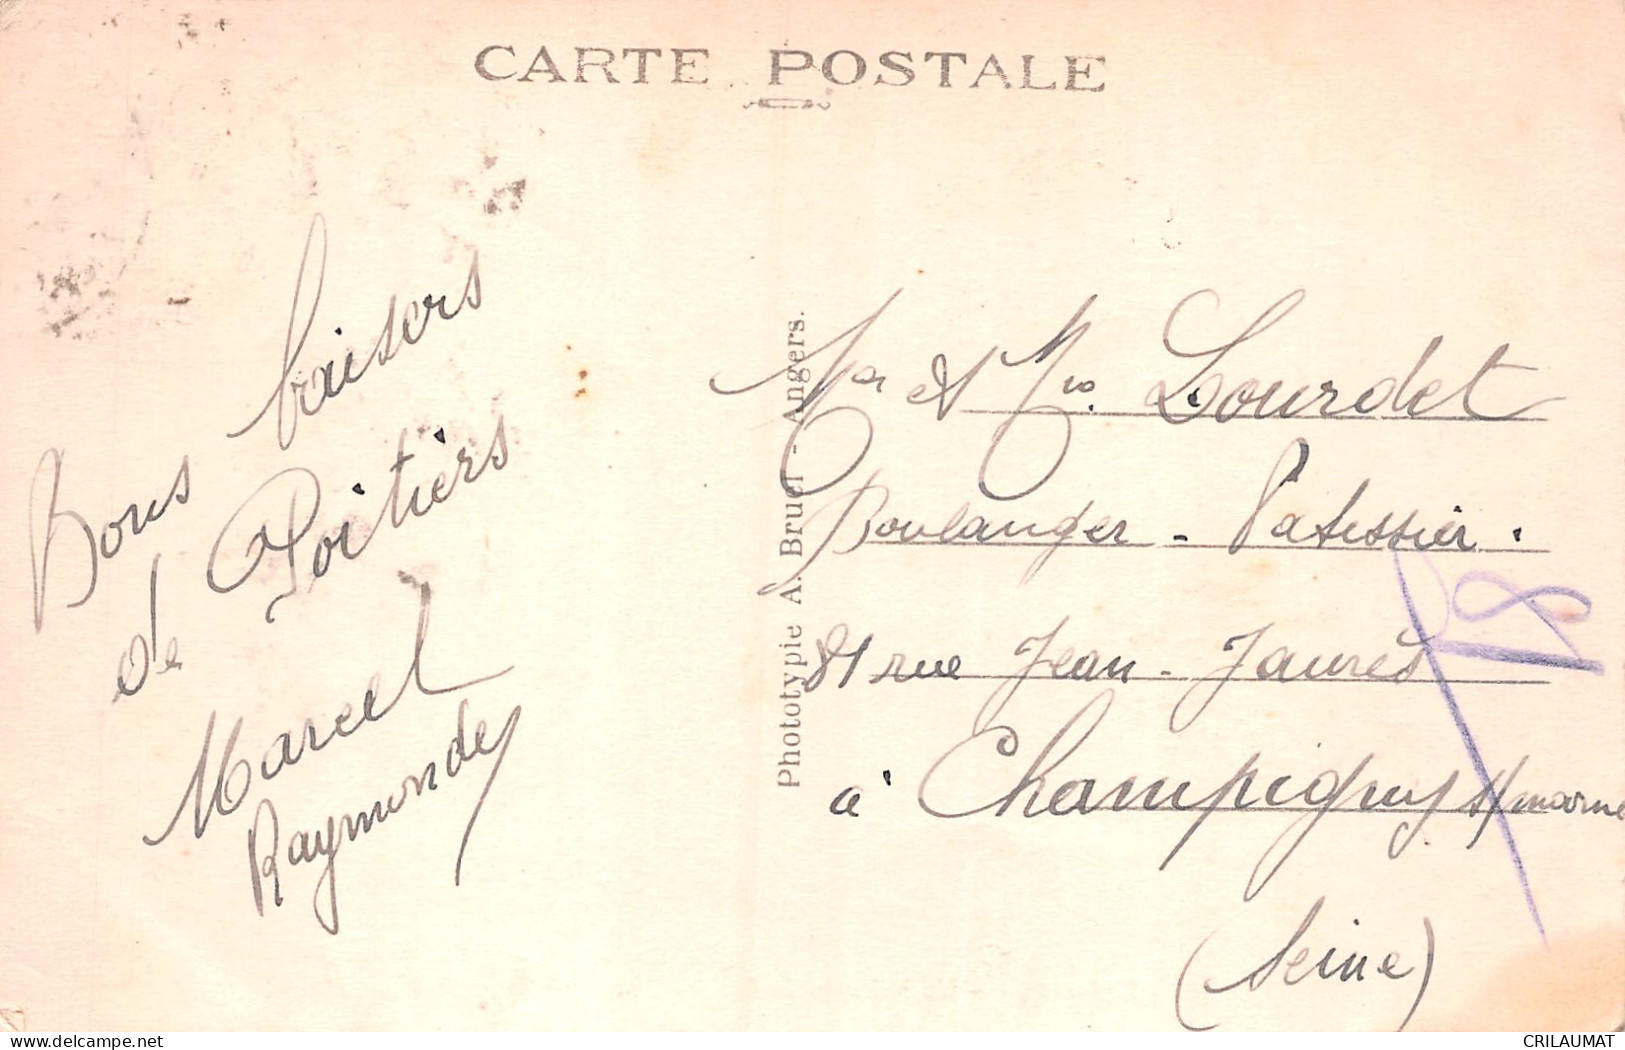 CARTE POSTALE
Bons baisers
de Poitiers
Marcel
Raymonde
Phototypie A. Bruel - Angers.
Mr et Mme Lourdet
Boulanger - Patissier.
81 rue Jean-Jaurès
à Champigny s/marne
(Seine)
18
delcampe.net
CRILAUMAT